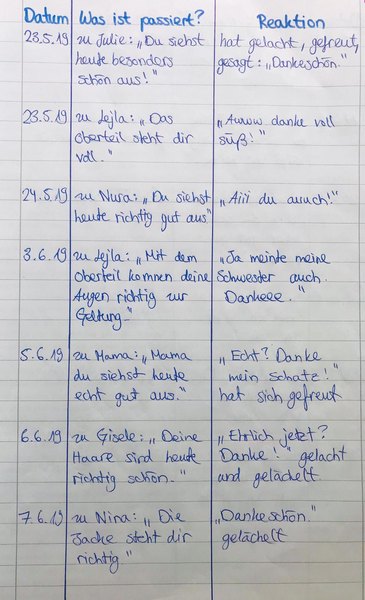 Datum Was ist passiert? Reaktion
23.5.19 zu Julie: „Du siehst hat gelacht, gefreut,
heute besonders gesagt: „Dankeschön."
schön aus!"
23.5.19 zu Lejla: „Das „Awww danke voll
Oberteil steht dir süß!"
voll."
24.5.19 zu Nura: „Du siehst „Aiii du auuch!"
heute richtig gut aus"
3.6.19 zu Lejla: „Mit dem „Ja meinte meine
Oberteil kommen deine Schwester auch.
Augen richtig zur Dankeee."
Geltung."
5.6.19 zu Mama: „Mama „Echt? Danke
du siehst heute mein Schatz!"
echt gut aus." hat sich gefreut
6.6.19 zu Gisele: „Deine „Ehrlich jetzt?
Haare sind heute Danke!" gelacht
richtig schön." und gelächelt.
7.6.19 zu Nina: „Die „Dankeschön."
Jacke steht dir gelächelt
richtig."